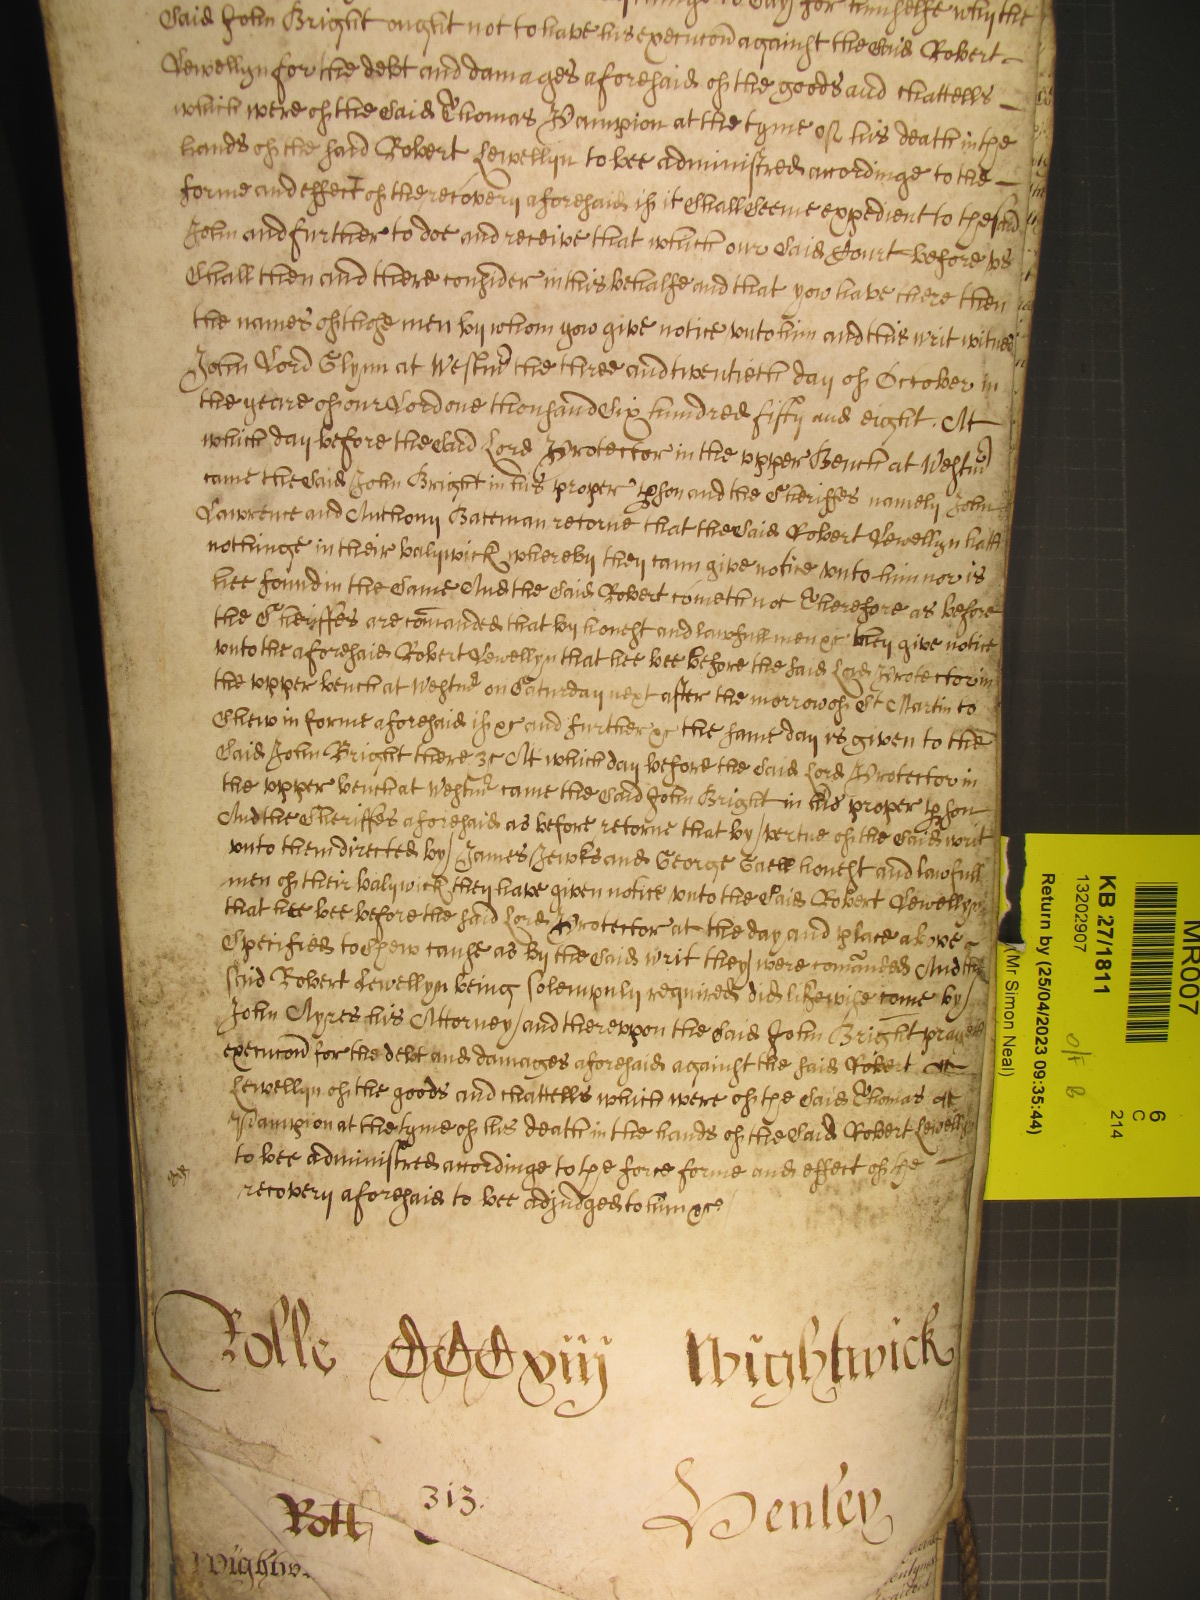 for himselfe why the
said John Bright ought not to have his execucon against the said Robert
Lewellyn for the debt and damages aforesaid of the goods and chattells
which were of the said Thomas Pampion at the tyme of his death in the
hands of the said Robert Lewellyn to bee administred accordinge to the
forme and effect of the recovery aforesaid if it shall seeme expedient to the said
John and further to doe and receive that which our said Court before us
shall then and there consider in this behalfe and that yow have there then
the names of those men by whom yow give notice unto him and this writ witnes
John Lord Glynn at Westmr the three and twentieth day of October in
the yeare of our Lord one thousand six hundred fifty and eight . At
which day before the said Lord Protector in the upper Bench at Westmr
came the said John Bright in his proper pson and the Sheriffes namely John
Lawrence and Anthony Bateman retorne that the said Robert Lewellyn hath
nothinge in their balywick whereby they cann give notice unto him nor is
hee found in the same And the said Robert cometh not Therefore as before
the Sheriffes are comanded that by honest and lawfull men &c they give notice
unto the aforesaid Robert Lewellyn that hee bee before the said Lord Protector in
the upper bench at Westmr on Saturday next after the morrow of St Martin to
shew in forme aforesaid if &c and further &c the same day is given to the
said John Bright there &c At which day before the said Lord Protector in
the upper bench at Westmr came the said John Bright in his proper pson
And the Sheriffes aforesaid as before retorne that by vertue of the said writ
unto them directed by James Jewks and George Gaell honest and lawfull
men of their balywick they have given notice unto the said Robert Lewellyn
that hee bee before the said Lord Protector at the day and place above
specified to shew cause as by the said writ they were comanded And the
said Robert Lewellyn being solempnly required did likewise come by
John Ayres his Attorney and thereuppon the said John Bright prayeth
execucon for the debt and damages aforesaid against the said Robert
Lewellyn of the goods and chattells which were of the said Thomas
Pampion at the tyme of his death in the hands of the said Robert Lewellyn
to bee administred accordinge to the force forme and effect of the
recovery aforesaid to bee adjudged to him &c
Rolle CCCxiij Wightwick
Roll 313. Henley
Wightw.
MR007
6
C
214
KB 27/1811
13202907
O/F B
Return by (25/04/2023 09:35:44)
(Mr Simon Neal)